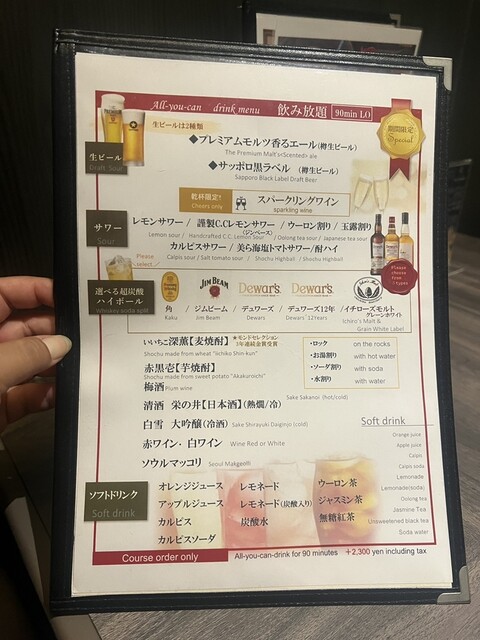 All-you-can drink menu 飲み放題 90min LO
生ビールは2種類
期間限定
Special
生ビール
Draft Sour
◆プレミアムモルツ香るエール(樽生ビール)
The Premium Malt's<Scented> ale
◆サッポロ黒ラベル (樽生ビール)
Sapporo Black Label Draft Beer
乾杯限定!
Cheers only
スパークリングワイン
sparkling wine
サワー
Sour
レモンサワー / 謹製C.Cレモンサワー / ウーロン割り / 玉露割り
(ジンベース)
Lemon sour / Handcrafted C.C. Lemon Sour / Oolong tea sour / Japanese tea sour
カルピスサワー / 美ら海塩トマトサワー / 酎ハイ
Calpis sour / Salt tomato sour / Shochu Highball / Shochu Highball
Please select
Please choose from 7 types
選べる超炭酸
ハイボール
Whiskey soda split
JIM BEAM Dewar's Dewar's
角 / ジムビーム / デュワーズ / デュワーズ12年 / イチローズモルト
グレーンホワイト
Kaku Jim Beam Dewars Dewars' 12Years Ichiro's Malt & Grain White Label
いいちこ深薫【麦焼酎】 ★モンドセレクション
3年連続金賞受賞
Shochu made from wheat "Iichiko Shin-kun"
赤黒壱【芋焼酎】
Shochu made from sweet potato "Akakuroichi"
・ロック on the rocks
・お湯割り with hot water
・ソーダ割り with soda
・水割り with water
梅酒 Plum wine
清酒 栄の井【日本酒】(熱燗/冷) Sake Sakanoi (hot/cold)
白雪 大吟醸(冷酒) Sake Shirayuki Daiginjo (cold)
赤ワイン・白ワイン Wine Red or White
ソウルマッコリ Seoul Makgeolli
ソフトドリンク
Soft drink
オレンジジュース レモネード ウーロン茶
アップルジュース レモネード(炭酸入り) ジャスミン茶
カルピス 炭酸水 無糖紅茶
カルピスソーダ
Soft drink
Orange juice
Apple juice
Calpis
Calpis soda
Lemonade
Lemonade(soda)
Oolong tea
Jasmine Tea
Unsweetened black tea
Soda water
Course order only
All-you-can-drink for 90 minutes +2,300 yen including tax